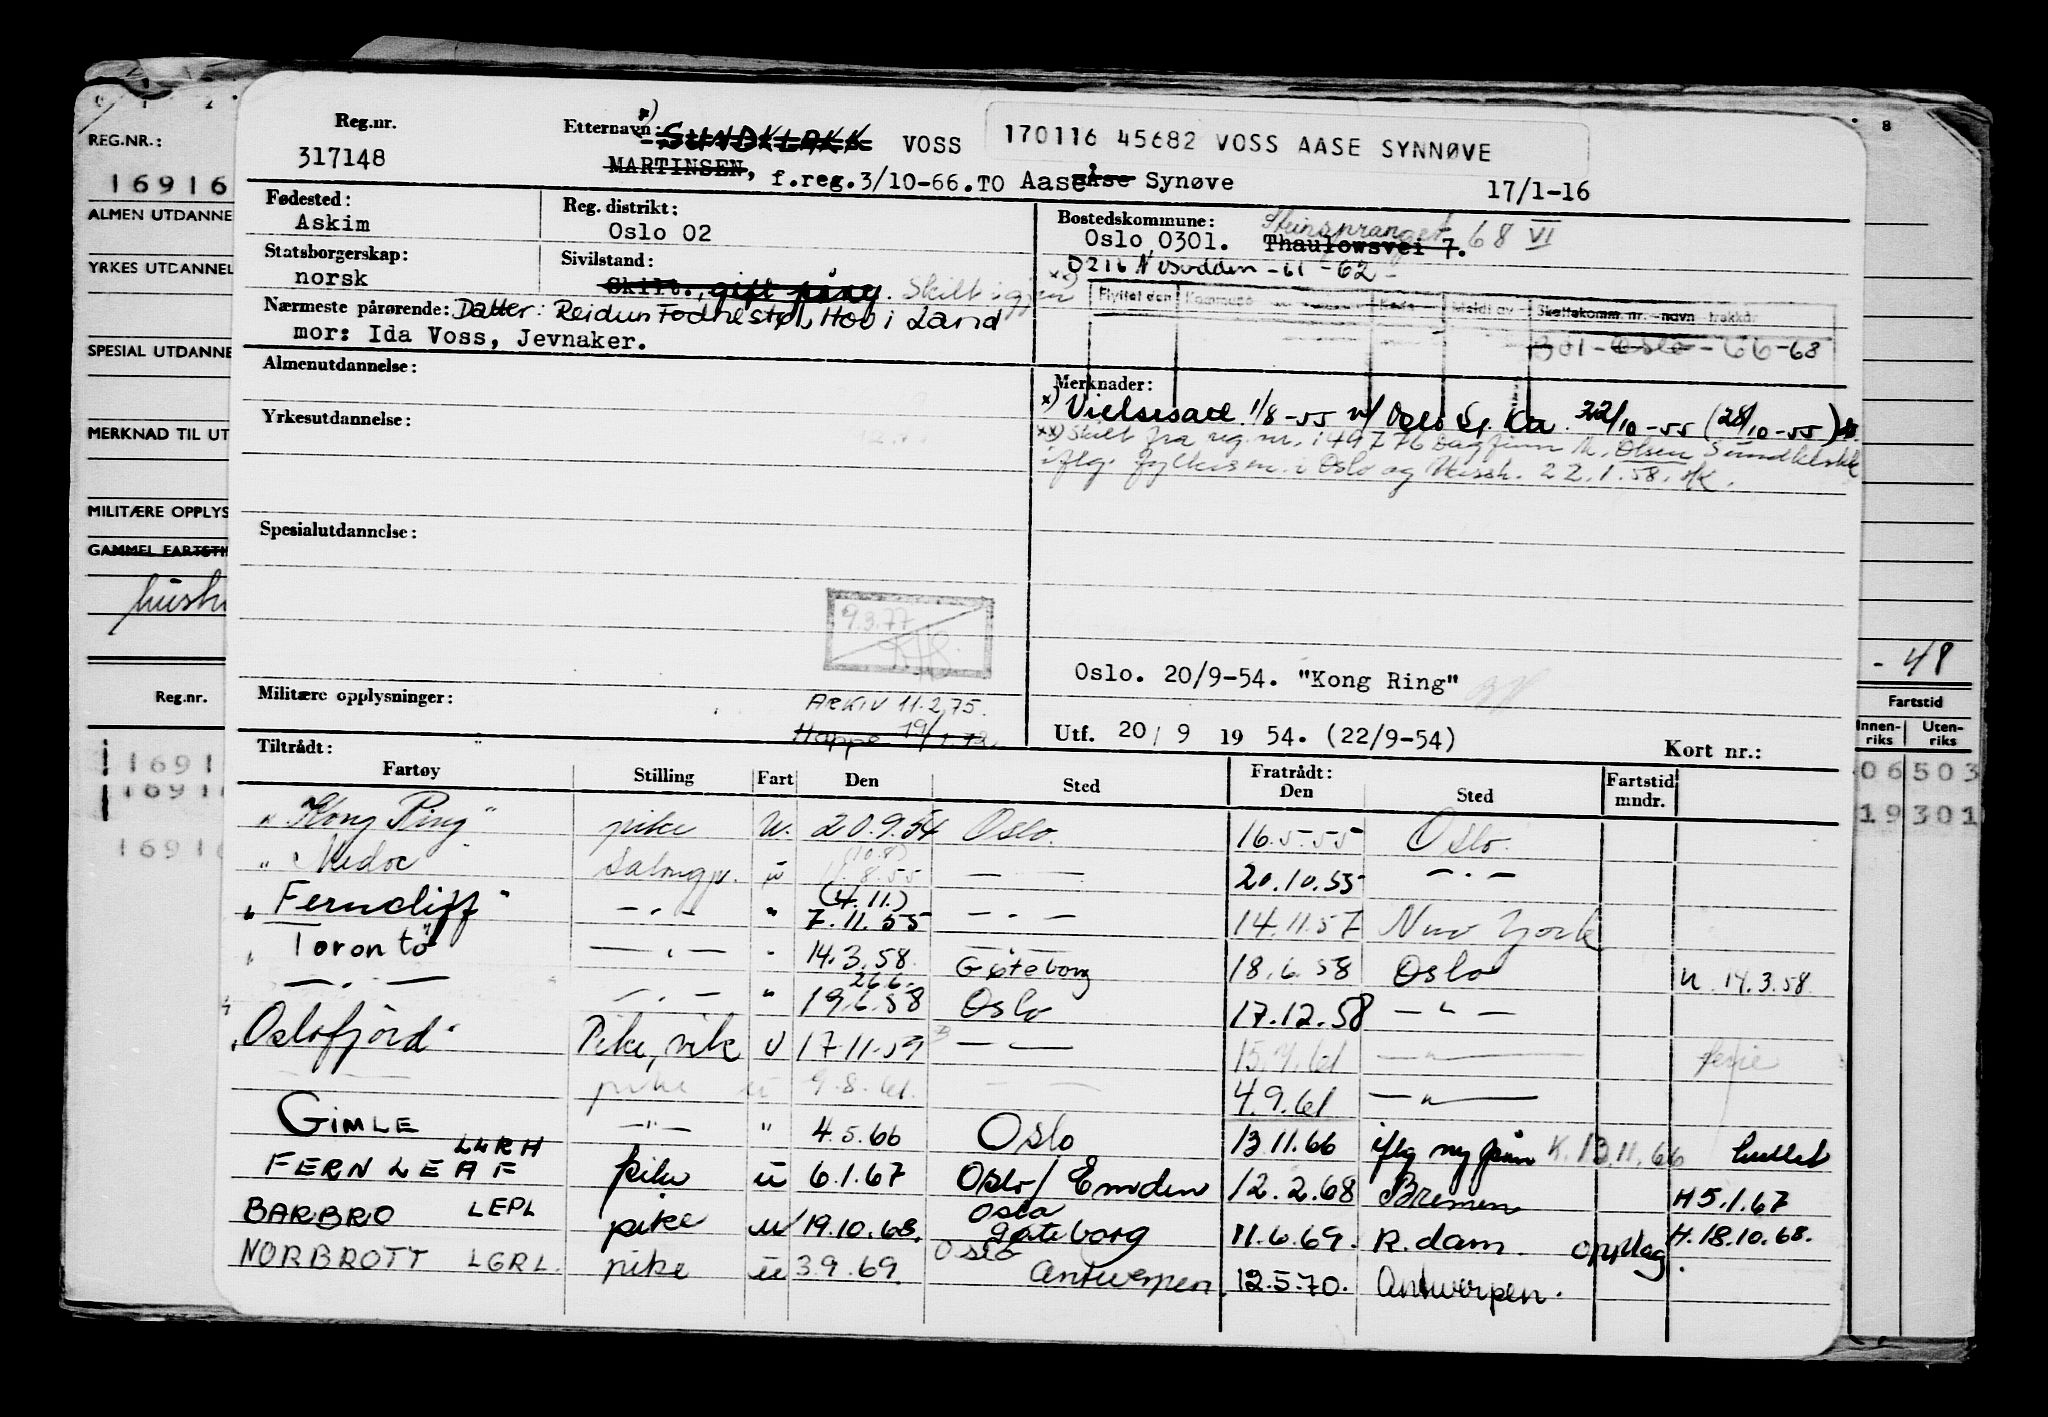 Reg.nr.
317148
Etternavn: x) SUNDKLAKK VOSS
170116 45682 VOSS AASE SYNNØVE
MARTINSEN, f.reg.3/10-66.TO Aase Åse Synøve 17/1-16
Fødested:
Askim
Reg. distrikt:
Oslo 02
Bostedskommune: Steinspranget 68 VI
Oslo 0301. Thaulowsvei 7.
0216 Nesodden -61-62-
Statsborgerskap:
norsk
Sivilstand:
Skilt., gift påny. Skilt igjen xx)
Nærmeste pårørende: Datter: Reidun Fodnestøl, Hov i Land
mor: Ida Voss, Jevnaker.
Flyttet den Kommune Kode Meldt av Skattekomm. nr. - navn - trekkår
301-Oslo-66-68
Almenutdannelse:
Yrkesutdannelse:
Spesialutdannelse:
Merknader:
x) Vielsesatt. 1/8-55 v/ Oslo 22/10-55 (28/10-55)
xx) Skilt fra reg. nr. 149776 Dagfinn M. Olsen Sundklakk
iflg. fylkesm. i Oslo og 22.1.58.
9.3.77
Militære opplysninger:
ARKIV 11.2.75.
Mappe
Oslo. 20/9-54. "Kong Ring"
Utf. 20/9 19 54. (22/9-54)
Kort nr.:
Tiltrådt: Fratrådt:
Fartøy Stilling Fart Den Sted Den Sted Fartstid mndr.
"Kong Ring" pike u. 20.9.54 Oslo. 16.5.55 Oslo.
(10.8)
"Medoc" Salongp. u 11.8.55 — — 20.10.55 — . —
(4.11.)
"Ferncliff" — . — " 7.11.55 — . — 14.11.57 New York
"Toronto" — . — " 14.3.58. Göteborg 18.6.58 Oslo U. 14.3.58.
26.6.
— . — — . — " 19.6.58 Oslo 17.12.58 — " —
"Oslofjord" Pike, vik U 17.11.59 — — 15.7.61 — " — ferie
— — pike u 9.8.61. — — 4.9.61 — " —
GIMLE — " — " 4.5.66 Oslo 13.11.66 iflg ny K.13.11.66 hullet
LLRH
FERNLEAF pike u 6.1.67 Oslo/Emden 12.2.68 Bremen H 5.1.67
BARBRO LEPL pike u 19.10.68. Oslo Gøteborg 11.6.69. R.dam. opplag H. 18.10.68.
NORBROTT LGRL. pike u 3.9.69. Oslo Antwerpen. 12.5.70. Antwerpen.
REG.NR.:
16916
ALMEN UTDANNE
YRKES UTDANNEL
SPESIAL UTDANNE
MERKNAD TIL UT
MILITÆRE OPPLYS
GAMMEL FARTSTI
Reg.nr.
1691
16916
16916
8
- 48
Fartstid
Innen-riks Uten-riks
06 503
19 301